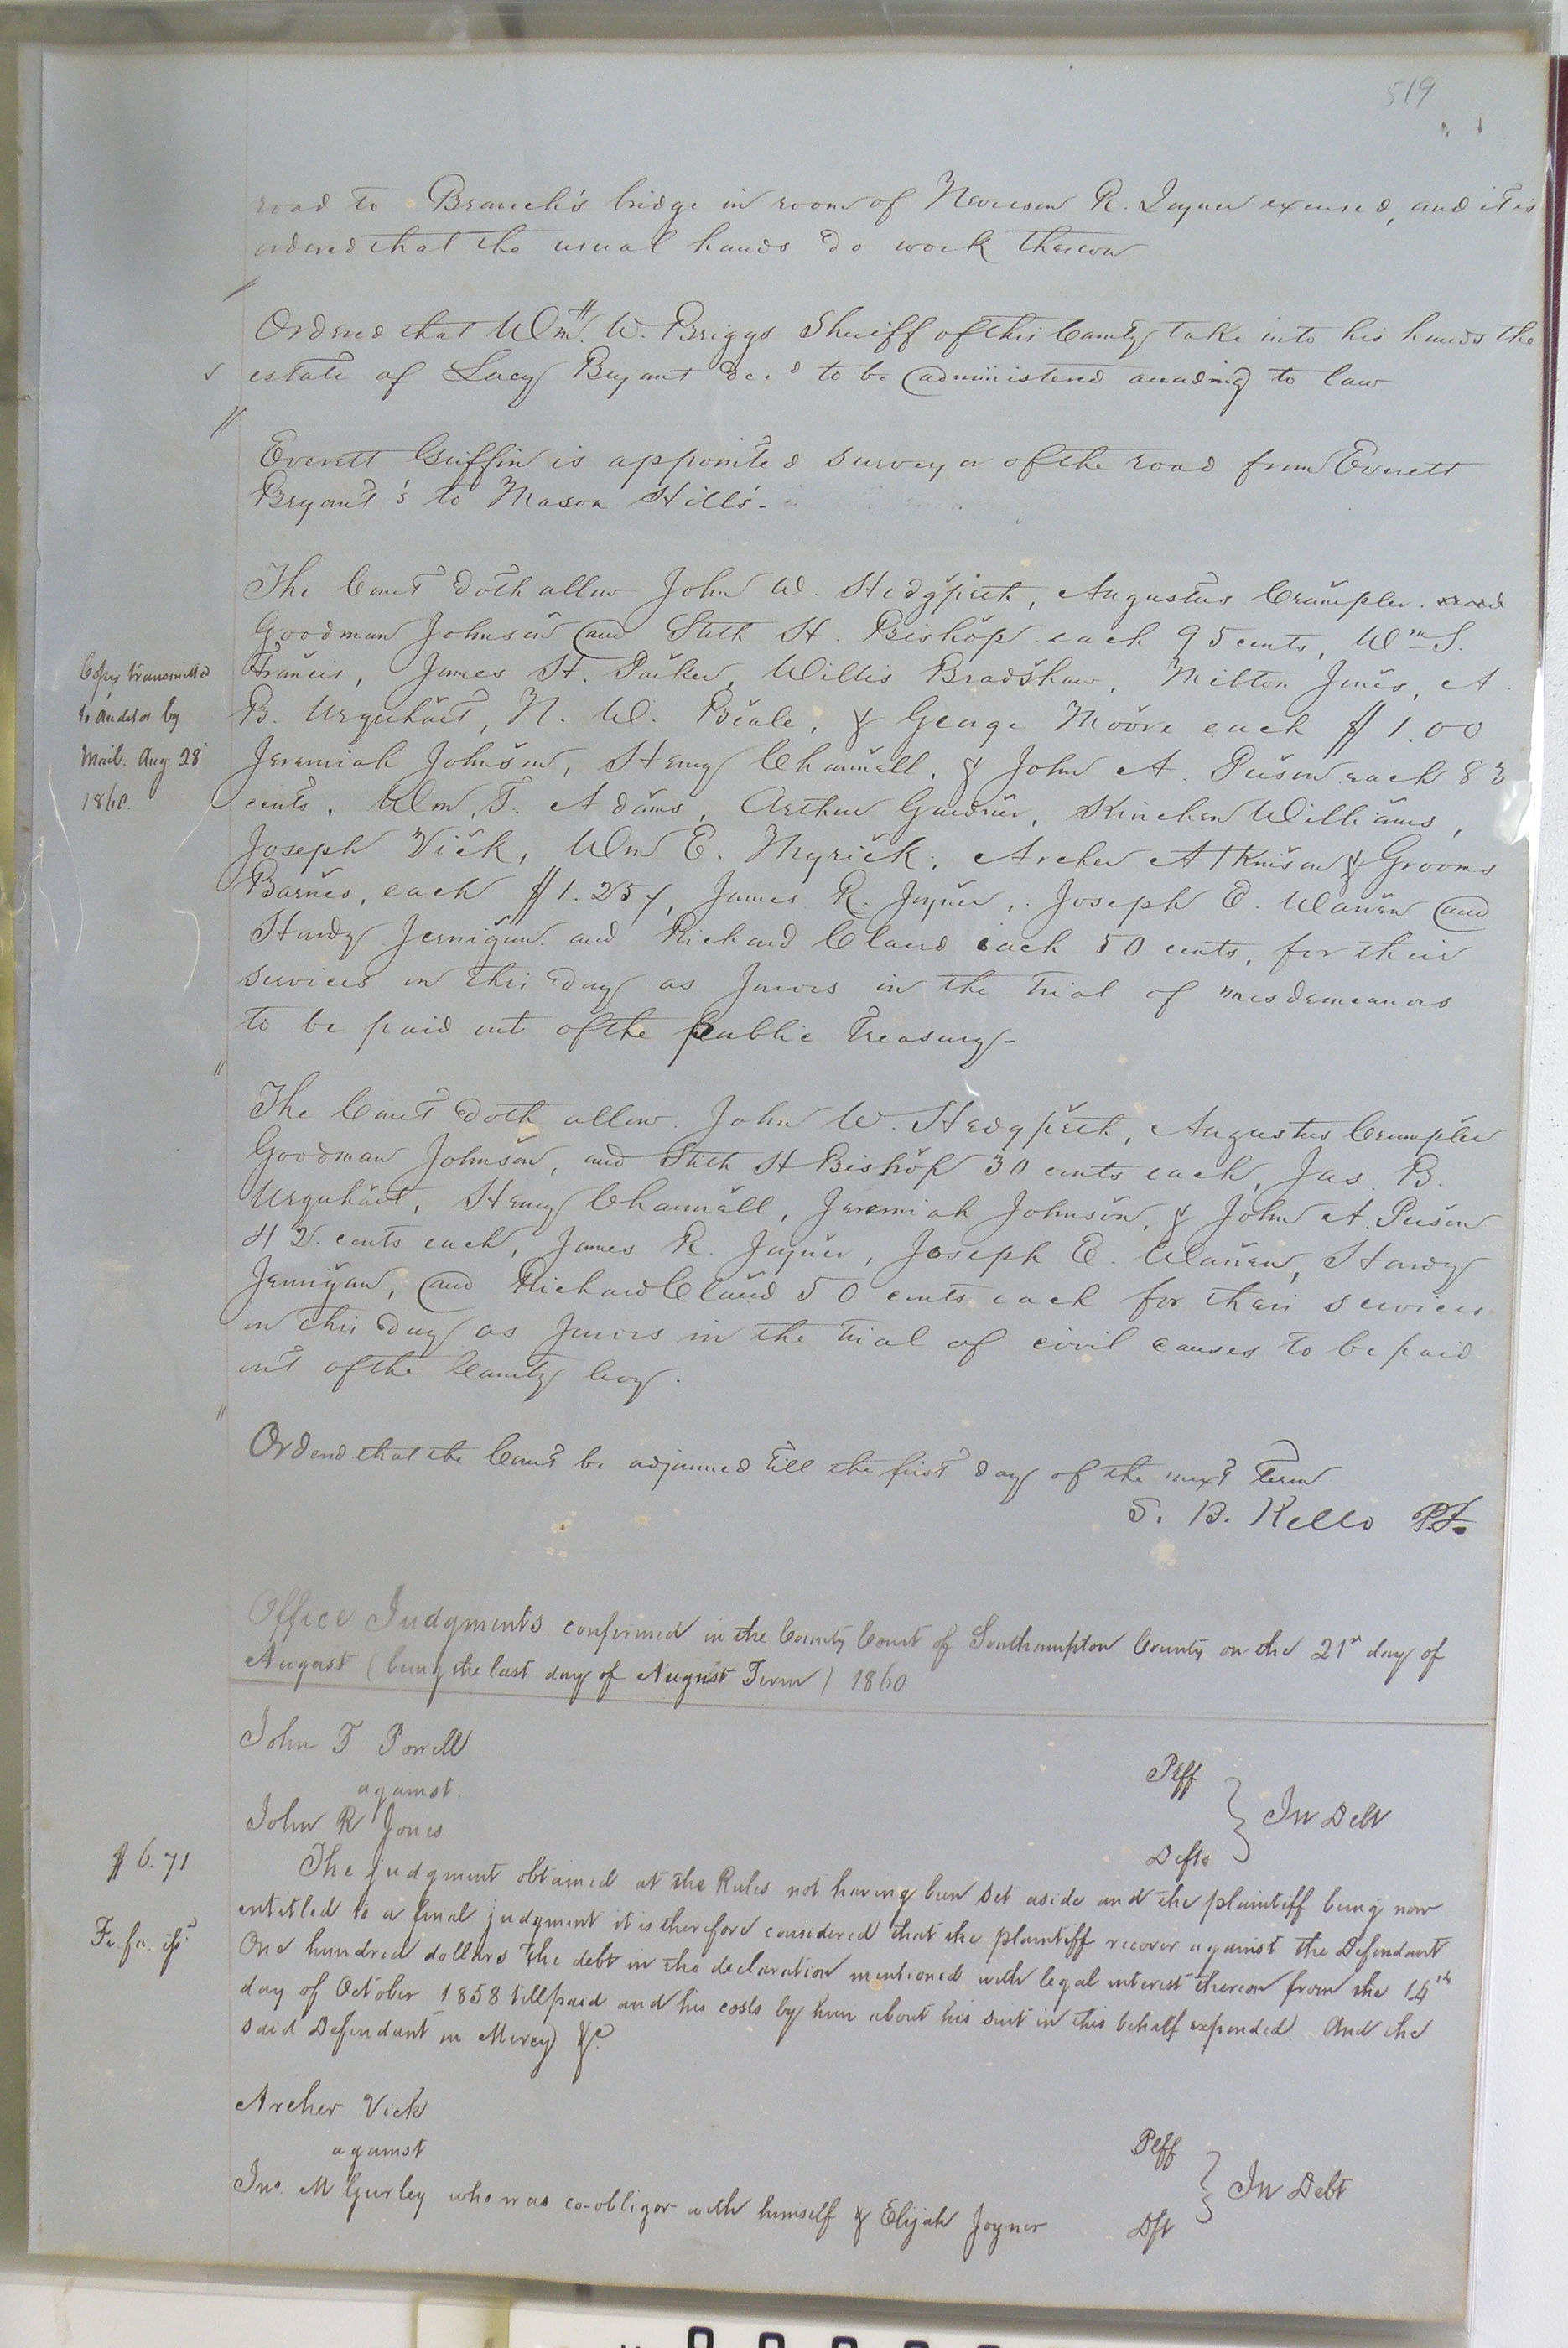 519
road to Branch's bridge in room of R. Joyner excused, and it is
ordered that the usual hands do work thereon
Ordered that Wm. W. Briggs Sheriff of this County take into his hands the
estate of Lucy Bryant dec.d to be administered according to law
Everett Griffin is appointed surveyor of the road from Everett
Bryant's to Mason Hill's.
The Court doth allow John W. Hedgpeth, Augustus Crumpler.
Goodman Johnson and Stith H. Bishop each 95 cents, Wm S.
Copy transmitted
to auditor by
Mail. Aug. 28
1860.
Francis, James H. Parker, Willis Bradshaw, Milton Jones, A.
B. Urquhart, N. W. Beale, & George Moore each $1.00
Jeremiah Johnson, Henry Channell, & John A. each 83
cents, Wm. T. Adams, Arthur Gardner, Kinchen Williams,
Joseph Vick, Wm E. Myrick, Archer Atkinson & Grooms
Barnes, each $1.25, James R. Joyner, Joseph E. Warren and
Hardy Jernigan and Richard Claud each 50 cents, for their
services on this day as Jurors in the trial of misdemeanors
to be paid out of the public Treasury -
The Court doth allow John W. Hedgpeth, Augustus Crumpler
Goodman Johnson, and Stith H Bishop 30 cents each, Jas. B.
Urquhart, Henry Channell, Jeremiah Johnson, & John A.
42 cents each, James R. Joyner, Joseph E. Warren, Hardy
Jernigan, and Richard Claud 50 cents each for their services
on this day as Jurors in the trial of civil causes to be paid
out of the County levy.
Ordered that the Court be adjourned till the first day of the next Term
S. B. Kello P.J.
Office Judgments confirmed in the County Court of Southampton County on the 21st day of
August (being the last day of August Term) 1860
John T Powell Plff
against
John R Jones Defts
In Debt
$6.71
Fi. fa.
The judgment obtained at the Rules not having been set aside and the plaintiff being now
entitled to a final judgment it is therefore considered that the plaintiff recover against the Defendant
One hundred dollars the debt in the declaration mentioned with legal interest thereon from the 14th
day of October 1858 till paid and his costs by him about his suit in this behalf expended. And the
said Defendant in Mercy &c
Archer Vick Plff
against
Jno. M Gurley who was co-obligor with himself & Elijah Joyner Dft
In Debt